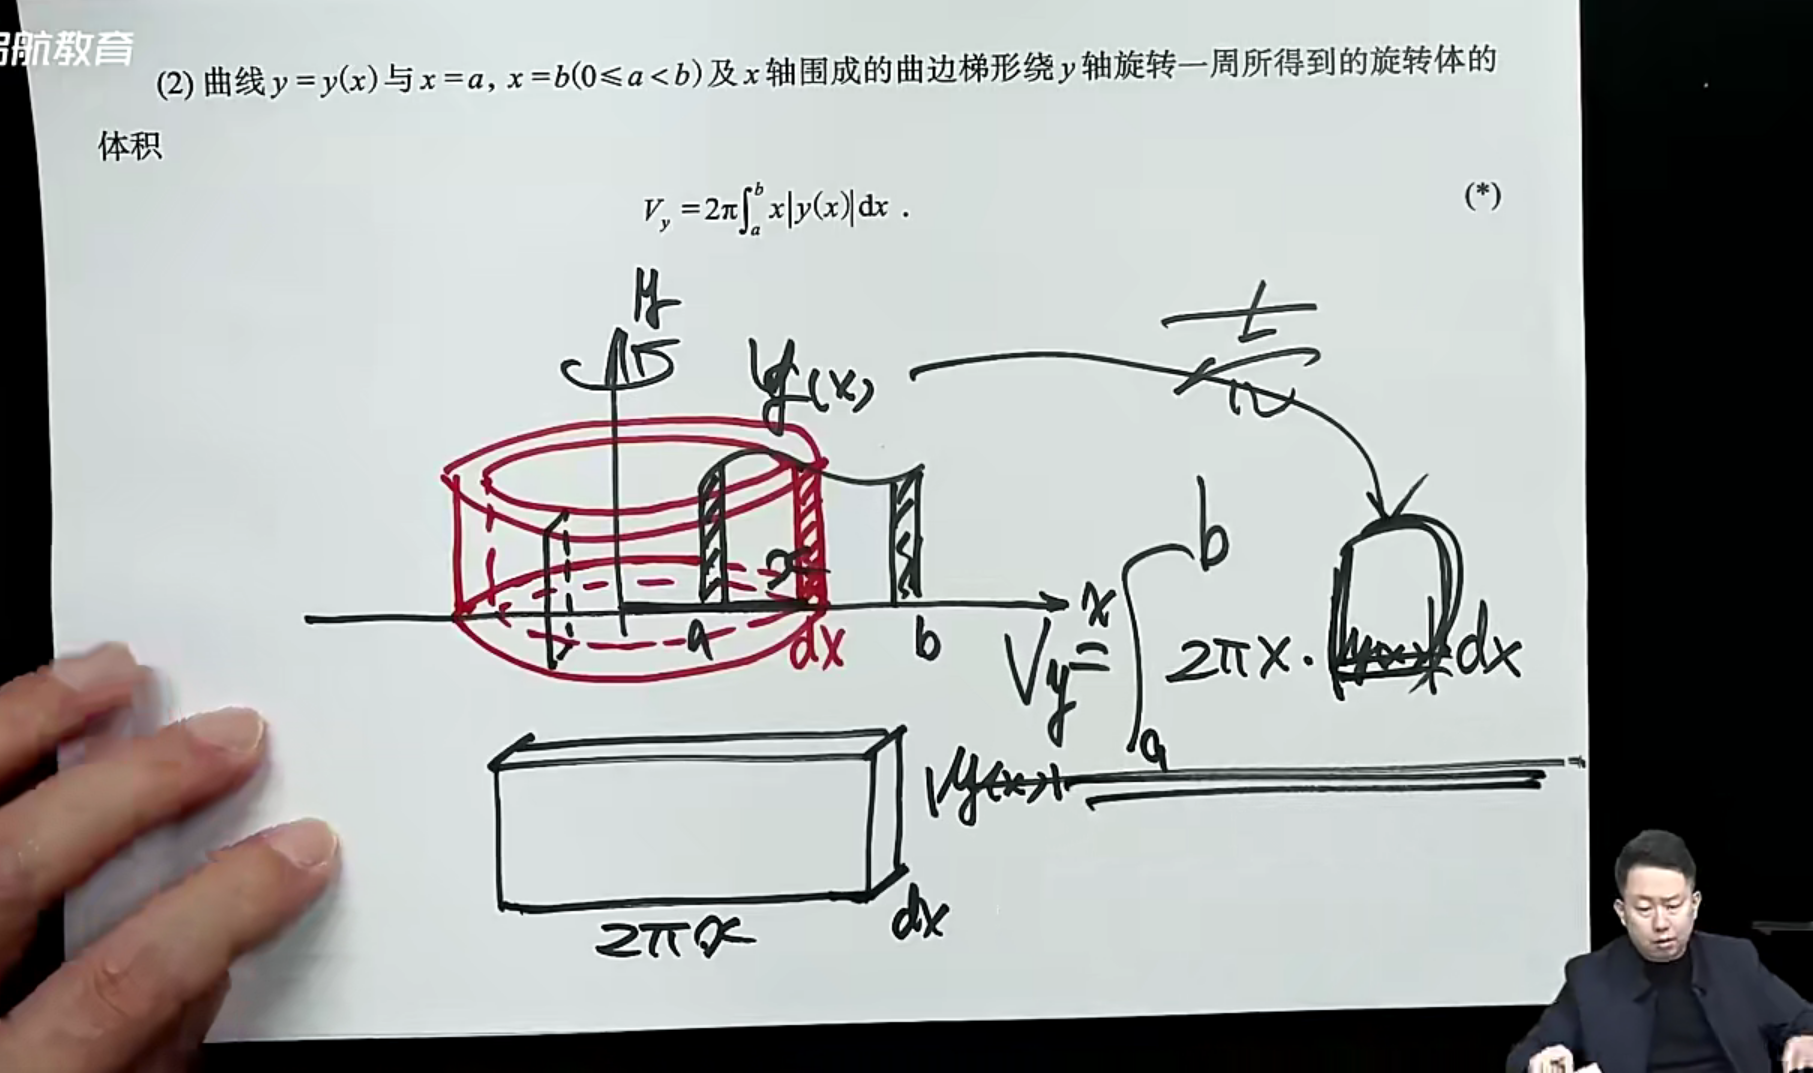 启航教育
(2) 曲线 y = y(x) 与 x = a, x = b(0 ⩽ a < b) 及 x 轴围成的曲边梯形绕 y 轴旋转一周所得到的旋转体的
体积
V_y = 2π∫_a^b x|y(x)|dx .
(*)
y
y(x)
x
a
dx
b
x
V_y = ∫_a^b 2πx · |y(x)| dx
|y(x)|
2πx
dx